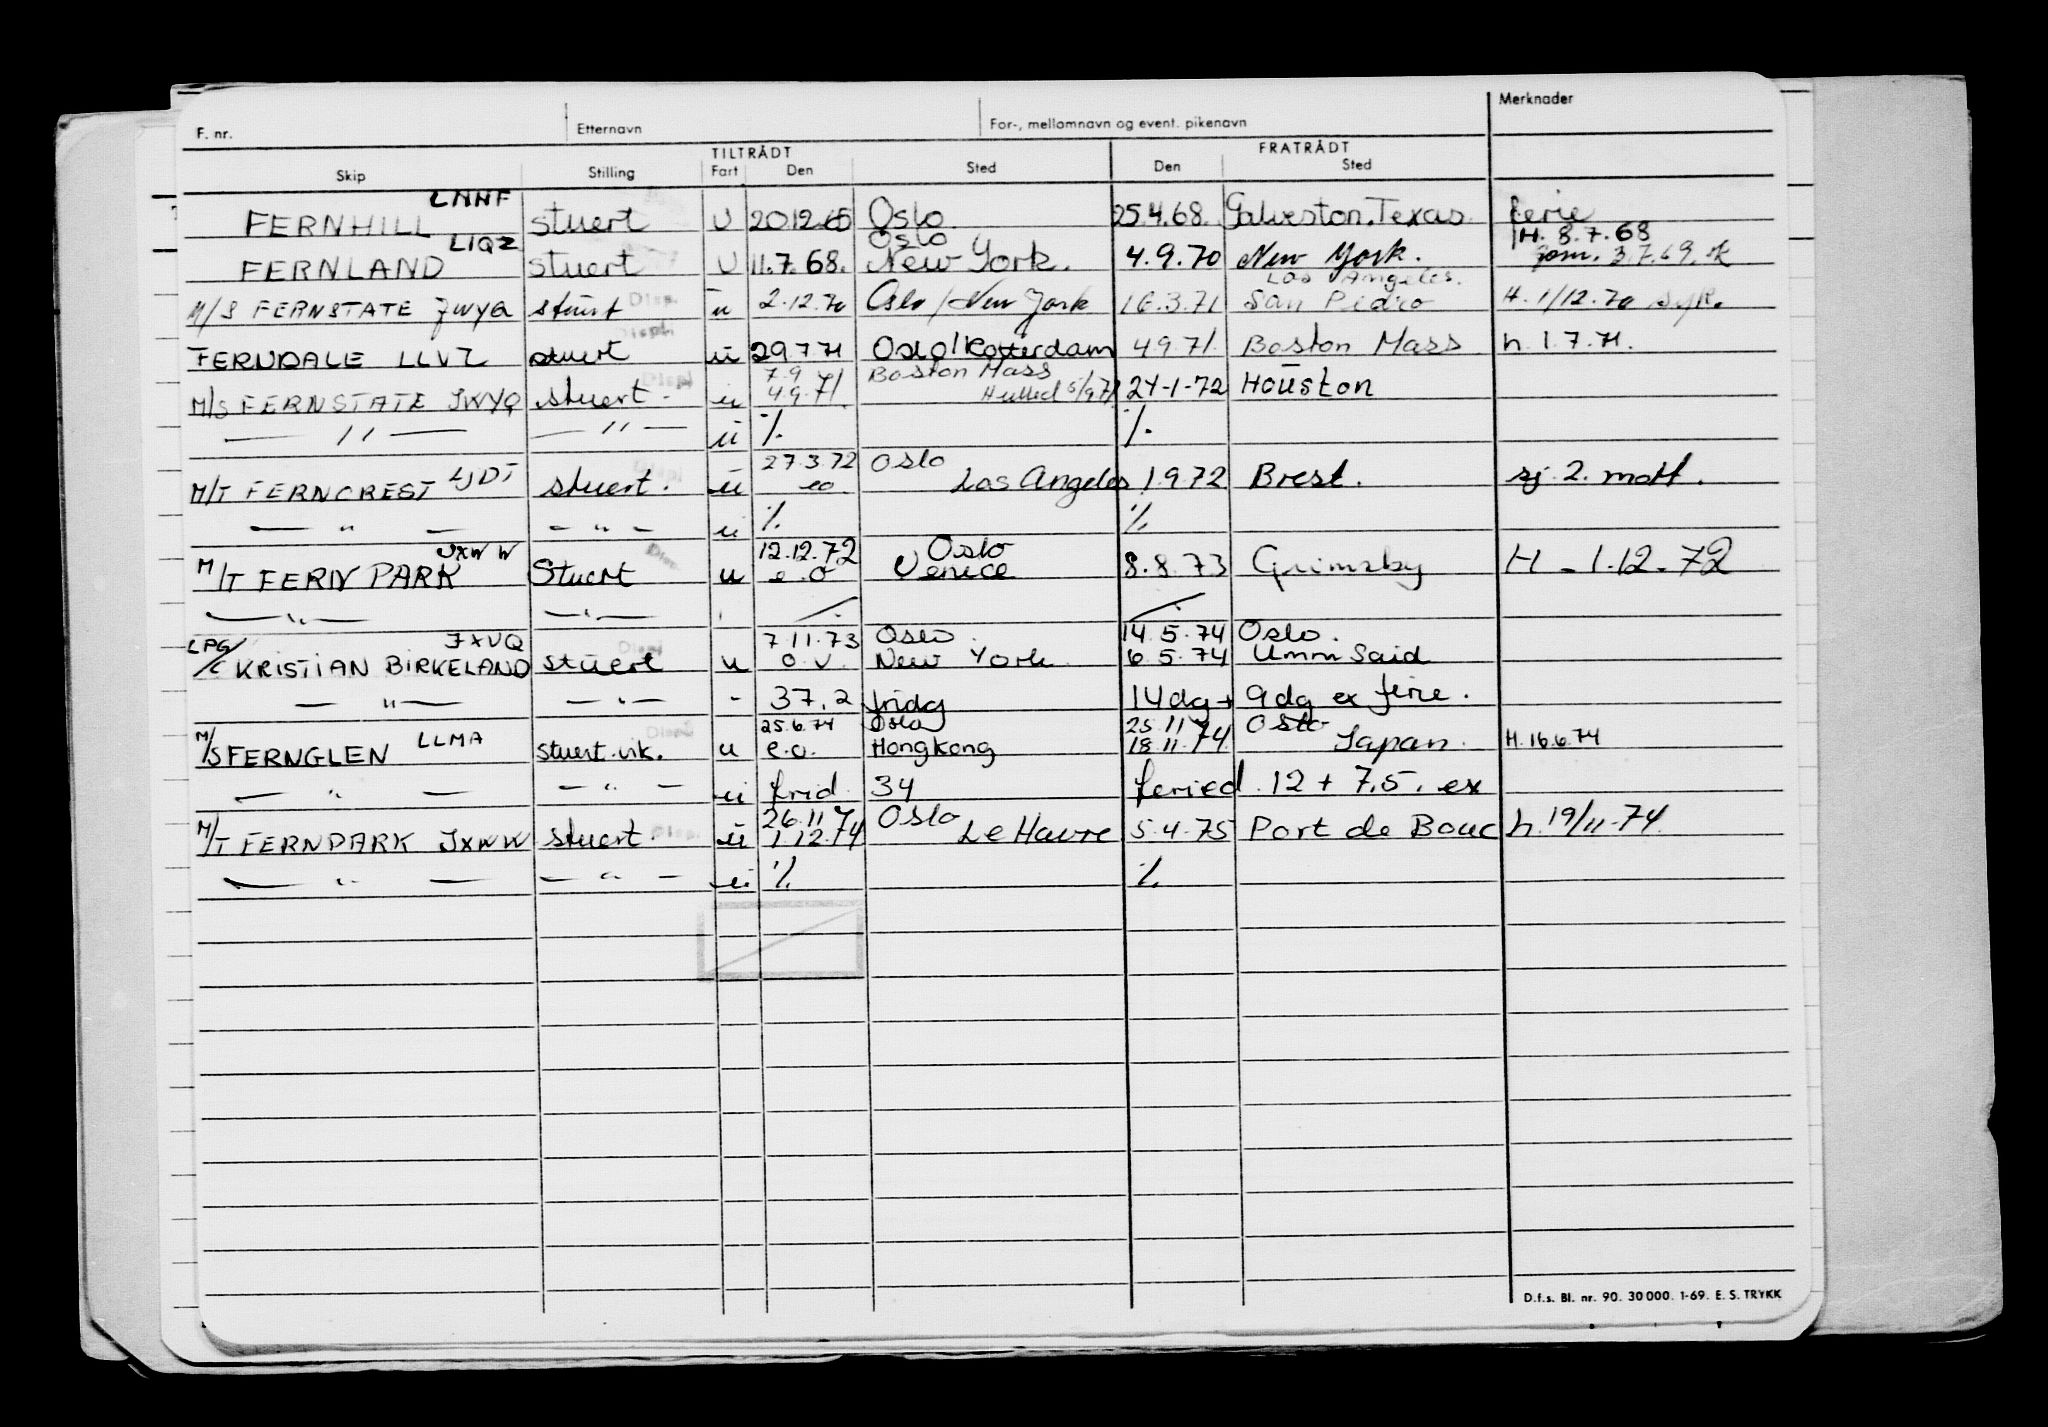 F. nr. Etternavn For-, mellomnavn og event. pikenavn Merknader
TILTRÅDT FRATRÅDT
Skip Stilling Fart Den Sted Den Sted
LNHF
FERNHILL stuert U 20.12.65 Oslo 25.4.68. Galveston.Texas ferie
LIQZ Oslo H. 8.7.68
FERNLAND stuert U 11.7.68. New York. 4.9.70 New York. 3.7.69.
Displ. Los Angeles.
M/S FERNSTATE JWYQ stuert u 2.12.70 Oslo/New York 16.3.71 San Pedro H. 1/12.70
Displ.
FERNDALE LLVZ stuert u 29 7 71 Oslo/Rotterdam 4 9 71 Boston Mass h. 1.7.71.
Displ 7.9 Boston Mass
M/S FERNSTATE JWYQ stuert. u 4.9.71. 5/9 71 24-1-72 Houston
— " — — " — u ./. ./.
LJDT Displ 27.3.72 Oslo
M/T FERNCREST stuert. u eo Los Angeles 1.9.72 Brest. sj. 2. mott.
— " — — " — u ./. ./.
JXWW Displ 12.12.72 Oslo
M/T FERN PARK Stuert u e.o Venice 8.8.73 Grimsby H - 1.12-72
— " — — " — ./. ./.
LPG/C JXUQ Displ 7.11.73 Oslo. 14.5.74 Oslo.
KRISTIAN BIRKELAND stuert u o.v. New York 6.5.74 Umm Said
— " — — " — - 37,2 fridg 14dg + 9dg ex ferie.
LLMA Displ 25.6.74 Oslo 25.11 Oslo
M/S FERNGLEN stuert.vik. u e.o. Hongkong 18.11.74 Japan. H.16.6.74
— " — — " — u frid. 34 feried. 12 + 7,5. ex
26.11 Oslo
M/T FERNPARK JXWW stuert. Displ. u 1.12.74 Le Havre 5.4.75 Port de Bouc h.19/11-74.
— " — — " — u ./. ./.
D.f.s. Bl. nr. 90. 30 000. 1-69. E. S. TRYKK